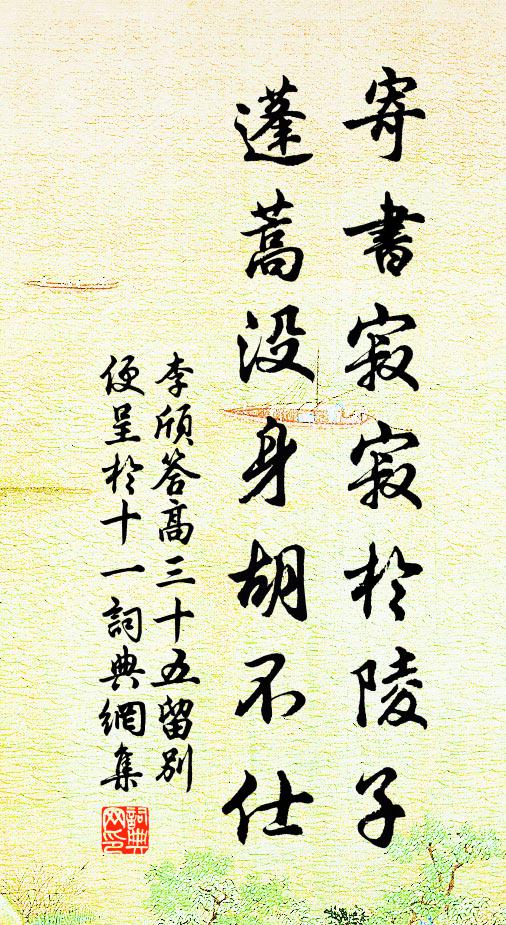 寄書寂寂於陵子
蓬蒿没身胡不仕
李頎答高三十五留別
便呈於十一詞典網集
詞典
网印